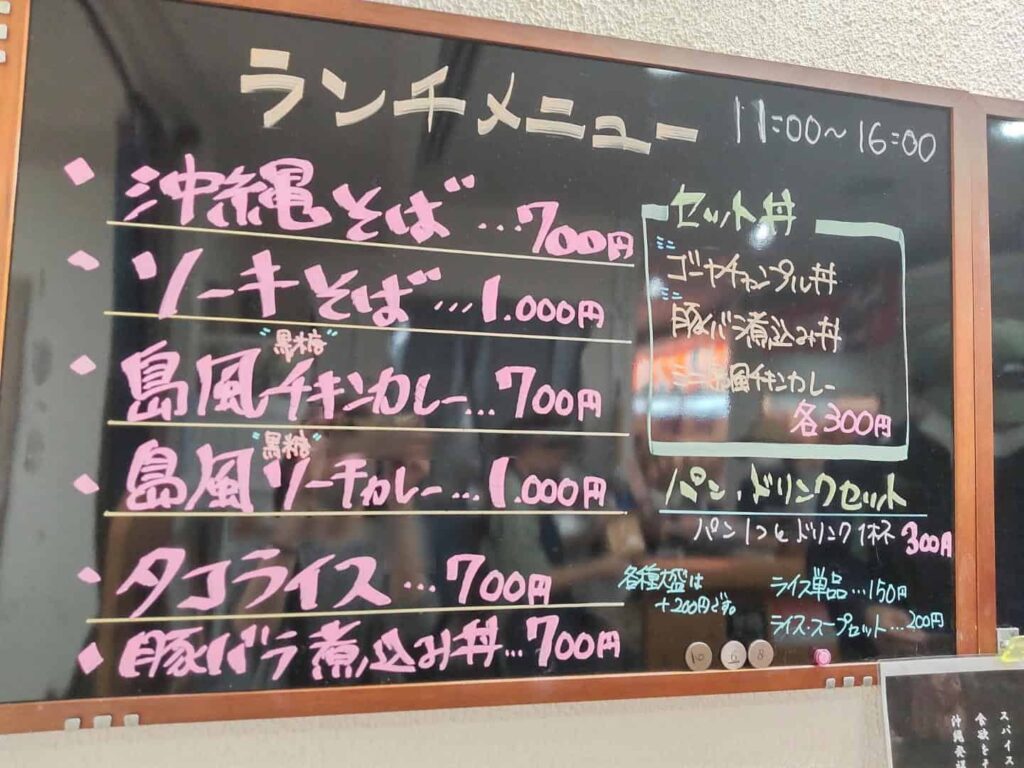 ランチメニュー 11:00〜16:00
沖縄そば…700円
ソーキそば…1.000円
"黒糖"
島風チキンカレー…700円
"黒糖"
島風ソーキカレー…1.000円
タコライス…700円
豚バラ煮込み丼…700円
セット丼
ミニ
ゴーヤチャンプル丼
ミニ
豚バラ煮込み丼
ミニ島風チキンカレー
各300円
パン・ドリンクセット
パン1つとドリンク1杯 300円
各種大盛は
+200円です。
ライス単品…150円
ライス・スープセット…200円
10 6 8
スパイス
食欲をそ
沖縄発